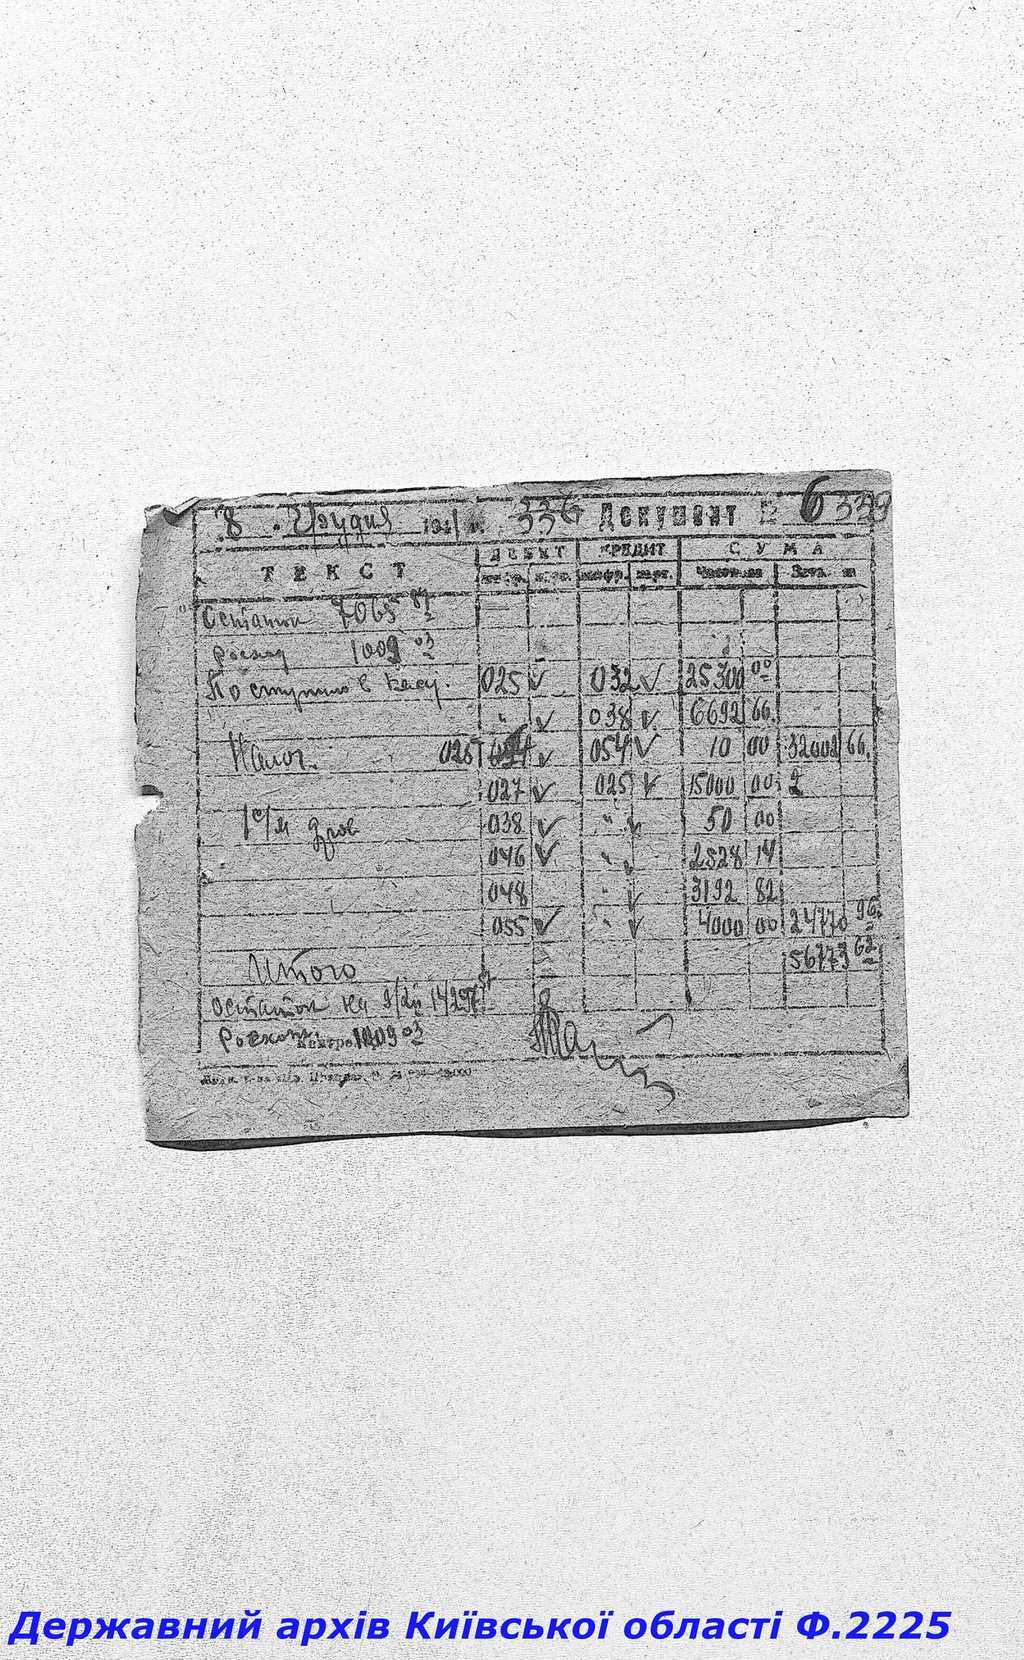 8 Грудня 194 1 р. 336 Документ № 6 339
ТЕКСТ ДЕБЕТ КРЕДИТ СУМА
шифр. карт. шифр. карт. Часткова Зага на
Остаток 7065 87
расход 1009 03
Поступило в касу. 025 032 25300 00
" 038 6692 66.
Налог. 025 054 10 00 32002 66.
027 025 15000 00
1 с/м дров 038 " 50 00
046 " 2528 14
048 " 3192 82
055 " 4000 00 24770 96
Итого 56773 62
остаток на 9/XII 14297 57
Расход. 1009 03
Державний архів Київської області Ф.2225